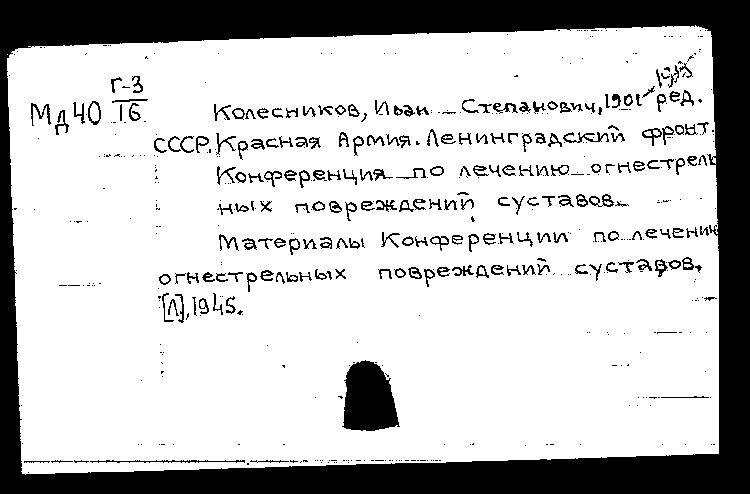 Г-3
Мд40 16
Колесников, Иван Степанович, 1901- ред.
СССР. Красная Армия. Ленинградский фронт.
Конференция по лечению огнестрель
ных повреждений суставов.
Материалы Конференции по лечении
огнестрельных повреждений суставов.
[Л], 1945.